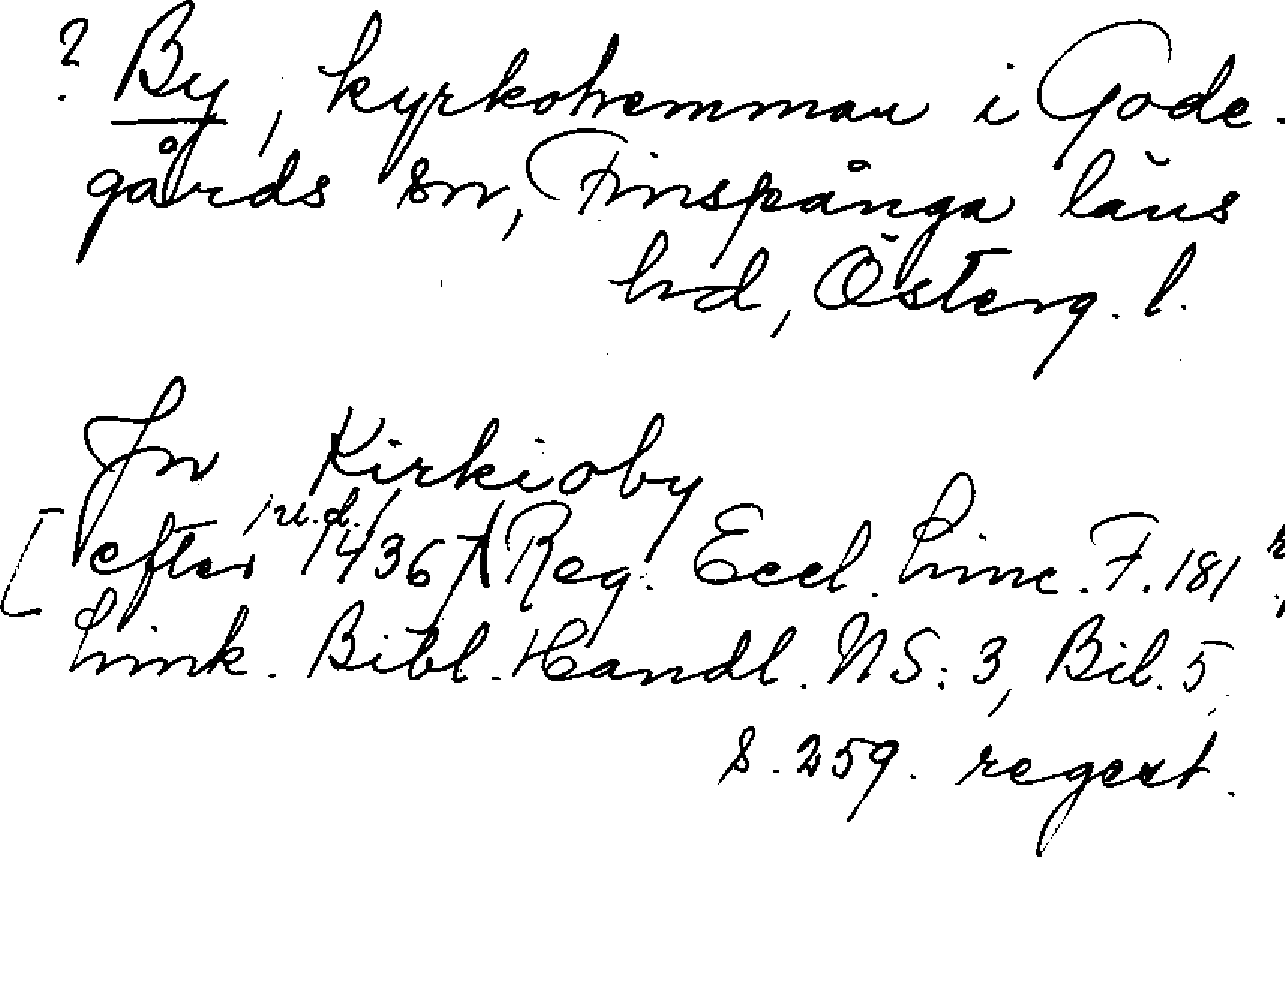 ? By, kyrkohemman i Gode-
gårds sn, Finspånga läns
hd, Österg. l.
Jn Kirkioby
/u.d./
[efter 1436] Reg. Eccl. Linc. F. 181
Link. Bibl. Handl. NS: 3, Bil. 5,
s. 259. regest.